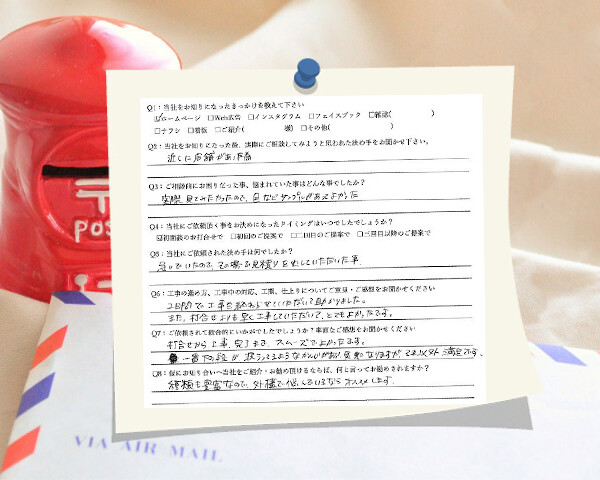 Q1：当社をお知りになったきっかけを教えて下さい
☑ホームページ □Web広告 □インスタグラム □フェイスブック □雑誌( )
□チラシ □看板 □ご紹介( 様) □その他( )
Q2：当社をお知りになった後、実際にご相談してみようと思われた決め手をお聞かせ下さい。
近くに店舗があった為
Q3：ご相談前にお困りだった事、悩まれていた事はどんな事でしたか？
実際見てみたかったので、色などサンプルがあってよかった
Q4：当社にご依頼頂く事をお決めになったタイミングはいつでしたでしょうか？
☑初回面談のお打合せで □初回のご提案で □二回目のご提案で □三回目以降のご提案で
Q5：当社にご依頼された決め手は何でしたか？
急いでいたので、その場で見積りを出していただいた事
Q6：工事の進め方、工事中の対応、工期、仕上りについてご意見・ご感想をお聞かせください
工事を終わらせていただいて助かりました。
また、打合せよりも早く工事していただいて、とてもよかったです。
Q7：ご依頼されて総合的にいかがでしたでしょうか？率直なご感想をお聞かせください
打合せから工事、完了まで、スムーズでよかったです。
一部 気になりますが、それ以外満足です。
Q8：仮にお知り合いへ当社をご紹介・お勧め頂けるならば、何と言ってお勧めされますか？
種類も豊富なので、外構で悩んでいるならオススメします。
POS
VIA AIR MAIL